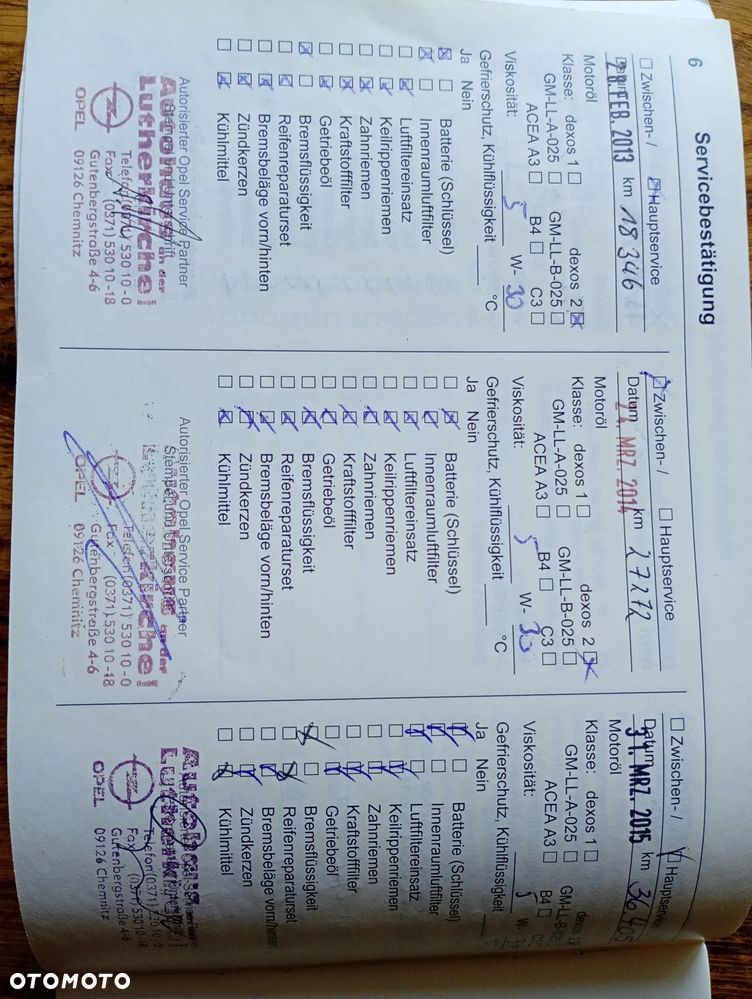 6
Servicebestätigung
☐ Zwischen- / ☒ Hauptservice
Datum 28. FEB. 2013 km 18 346
Motoröl
Klasse: dexos 1 ☐ dexos 2 ☒
GM-LL-A-025 ☐ GM-LL-B-025 ☐
ACEA A3 ☐ B4 ☐ C3 ☐
Viskosität: 5 W- 30
Gefrierschutz, Kühlflüssigkeit ____ °C
Ja Nein
☒ ☐ Batterie (Schlüssel)
☒ ☐ Innenraumluftfilter
☐ ☒ Luftfiltereinsatz
☐ ☒ Keilrippenriemen
☐ ☒ Zahnriemen
☐ ☒ Kraftstofffilter
☐ ☒ Getriebeöl
☒ ☐ Bremsflüssigkeit
☐ ☒ Reifenreparaturset
☐ ☒ Bremsbeläge vorn/hinten
☐ ☒ Zündkerzen
☐ ☒ Kühlmittel
Autorisierter Opel Service Partner
Autohaus an der
Lutherkirche!
Telefon (0371) 530 10 - 0
Fax: (0371) 530 10 -18
Gutenbergstraße 4-6
OPEL 09126 Chemnitz
☒ Zwischen- / ☐ Hauptservice
Datum 24. MRZ. 2014 km 27272
Motoröl
Klasse: dexos 1 ☐ dexos 2 ☒
GM-LL-A-025 ☐ GM-LL-B-025 ☐
ACEA A3 ☐ B4 ☐ C3 ☐
Viskosität: 5 W- 30
Gefrierschutz, Kühlflüssigkeit ____ °C
Ja Nein
☐ ☒ Batterie (Schlüssel)
☐ ☒ Innenraumluftfilter
☐ ☒ Luftfiltereinsatz
☐ ☒ Keilrippenriemen
☐ ☒ Zahnriemen
☐ ☒ Kraftstofffilter
☐ ☒ Getriebeöl
☐ ☒ Bremsflüssigkeit
☐ ☒ Reifenreparaturset
☐ ☒ Bremsbeläge vorn/hinten
☐ ☒ Zündkerzen
☐ ☒ Kühlmittel
Autorisierter Opel Service Partner
Stempel und Unterschrift
an der
Telefon (0371) 530 10 -0
Fax: (0371) 530 10 -18
Gutenbergstraße 4-6
OPEL 09126 Chemnitz
☐ Zwischen- / ☒ Hauptservice
Datum 31. MRZ. 2015 km
Motoröl
Klasse: dexos 1 ☐ dexos
GM-LL-A-025 ☐ GM-LL-B-
ACEA A3 ☐ B4 ☐
Viskosität: 5 W-
Gefrierschutz, Kühlflüssigkeit
Ja Nein
☒ ☐ Batterie (Schlüssel)
☒ ☐ Innenraumluftfilter
☒ ☐ Luftfiltereinsatz
☐ ☒ Keilrippenriemen
☐ ☒ Zahnriemen
☐ ☒ Kraftstofffilter
☐ ☒ Getriebeöl
☒ ☐ Bremsflüssigkeit
☐ ☒ Reifenreparaturset
☐ ☒ Bremsbeläge vorn/hinten
☐ ☒ Zündkerzen
☐ ☒ Kühlmittel
Autohaus
Telefon (0371) 530 10 -0
Fax: (0371) 530 10 -18
Gutenbergstraße 4-6
OPEL 09126 Chemnitz
OTOMOTO